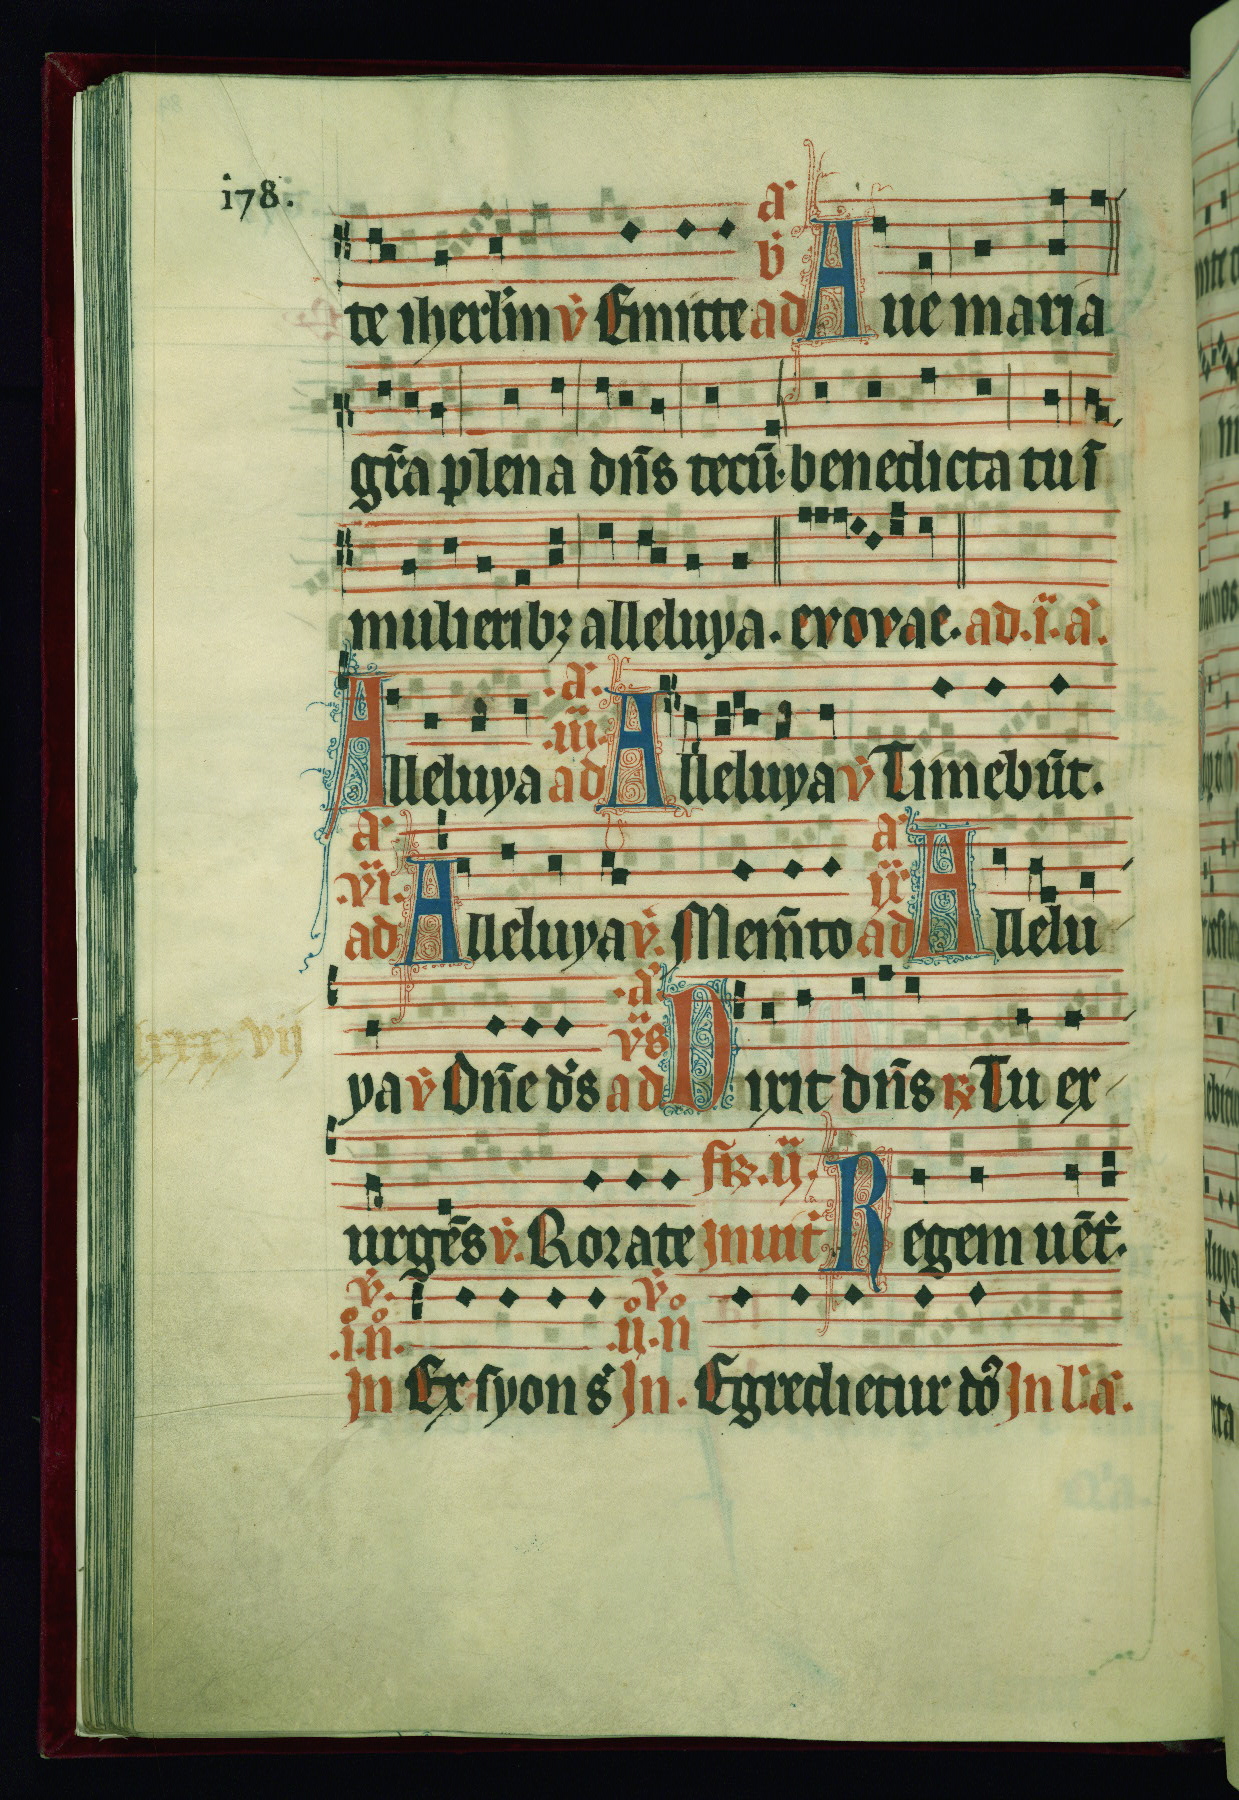 i78.
a
v̄
te iherl̄m v̄ Emitte ad Aue maria
gr̄a plena dn̄s tecū. benedicta tu ī
mulierib; alleluya. evovae. ad. i. a.
.a.
.iii.
Alleluya ad Alleluya v̄ Timebūt.
a a
.vi. ix
ad Alleluya v̄. Mem̄to ad Allelu
.a.
vs
ya v̄ Dn̄e d's ad Dixit dn̄s R Tu ex
fR. ii.
urgēs v̄. Rorate Inuit Regem uēt.
v̄. v̄
.i. n. .ii. n
In Ex syon s In. Egredietur dō In l. a.
lxxxvij